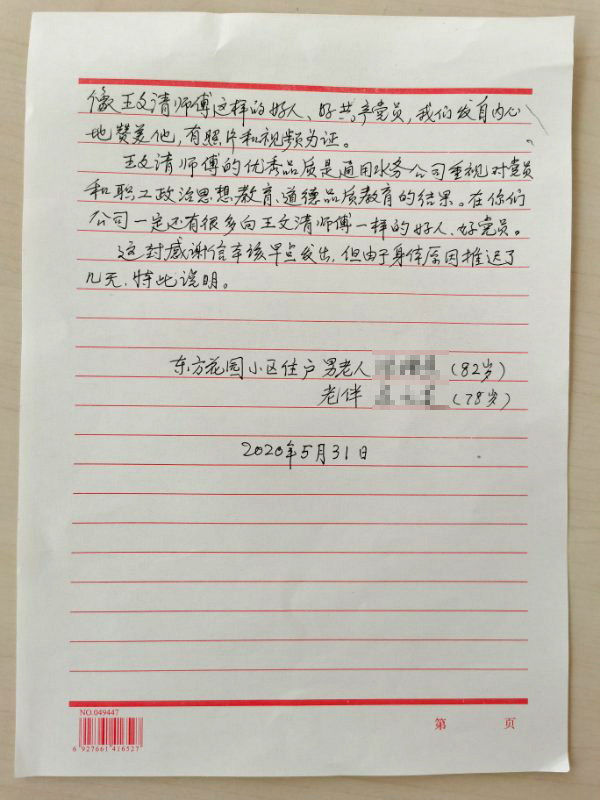 像王文清师傅这样的好人、好共产党员，我们发自内心
地赞美他，有照片和视频为证。
王文清师傅的优秀品质是通用水务公司重视对党员
和职工政治思想教育、道德品质教育的结果。在你们
公司一定还有很多向王文清师傅一样的好人、好党员。
这封感谢信本该早点发出，但由于身体原因推迟了
几天，特此说明。
东方花园小区住户男老人（82岁）
老伴（78岁）
2020年5月31日
NO.049447
6 927661 416527
第 页